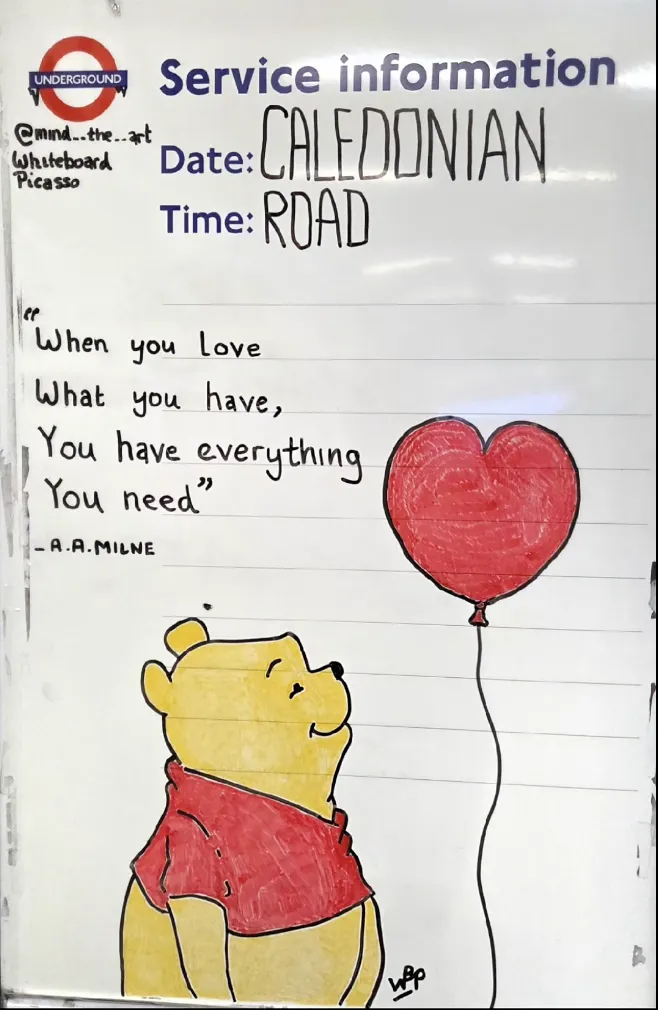 UNDERGROUND
Service information
@mind..the..art
Whiteboard
Picasso
Date: CALEDONIAN
Time: ROAD
"When you love
What you have,
You have everything
You need"
- A.A.MILNE
WBP